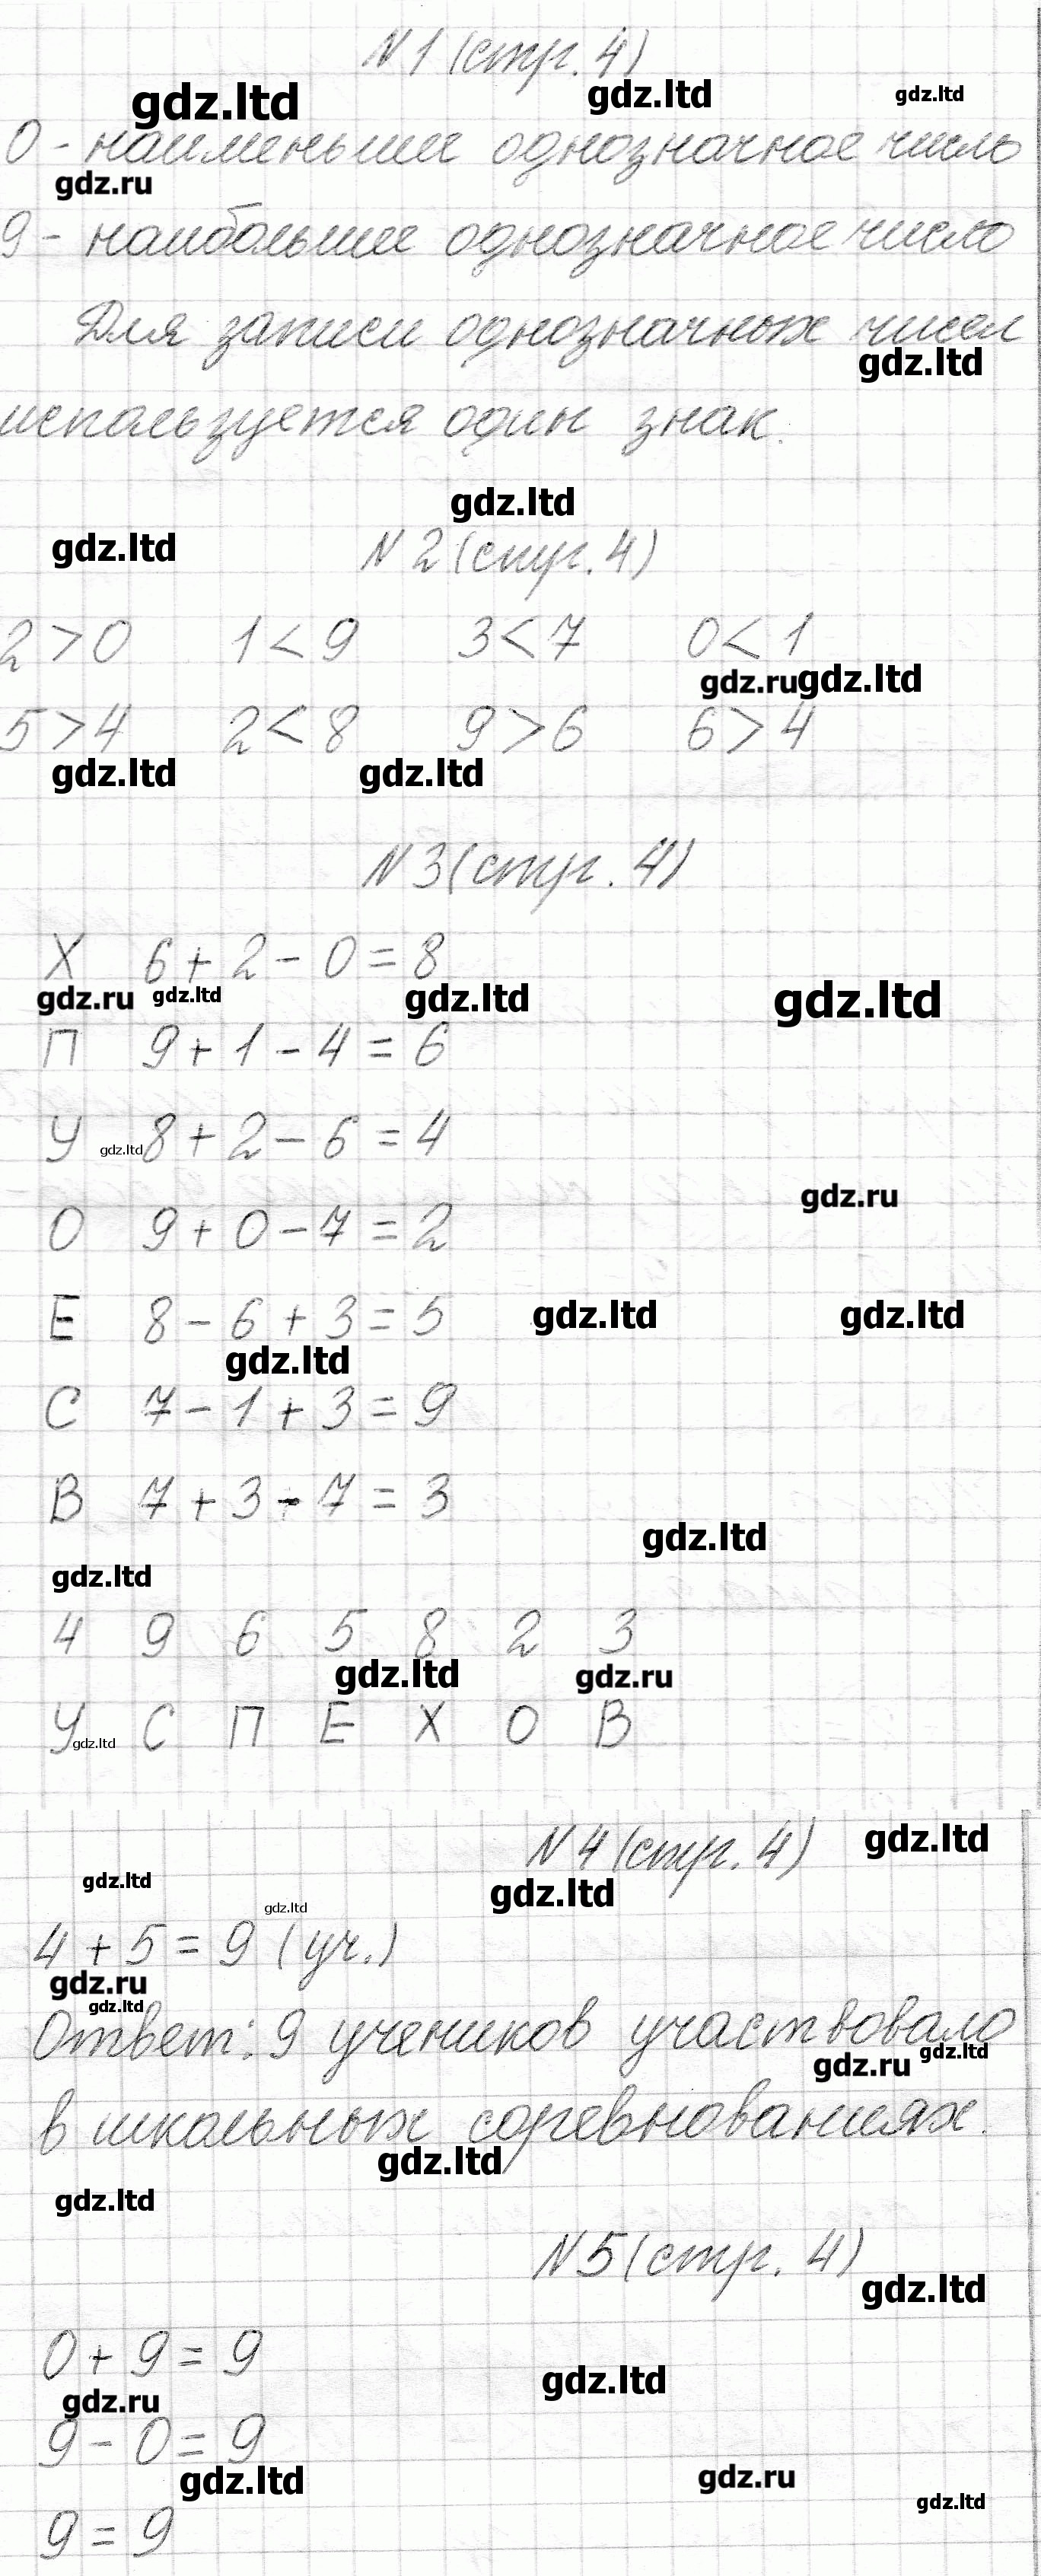 N 1 (стр. 4)
gdz.ltd gdz.ltd gdz.ltd
0 - наименьшее однозначное число
gdz.ru
9 - наибольшее однозначное число
Для записи однозначных чисел
gdz.ltd
используется один знак.
gdz.ltd
gdz.ltd N 2 (стр. 4)
2 > 0 1 < 9 3 < 7 0 < 1
gdz.ru gdz.ltd
5 > 4 2 < 8 9 > 6 6 > 4
gdz.ltd gdz.ltd
N 3 (стр. 4)
Х 6 + 2 - 0 = 8
gdz.ru gdz.ltd gdz.ltd gdz.ltd
П 9 + 1 - 4 = 6
У gdz.ltd 8 + 2 - 6 = 4
gdz.ru
О 9 + 0 - 7 = 2
Е 8 - 6 + 3 = 5 gdz.ltd gdz.ltd
gdz.ltd
С 7 - 1 + 3 = 9
В 7 + 3 - 7 = 3
gdz.ltd
gdz.ltd
4 9 6 5 8 2 3
gdz.ltd gdz.ru
У С П Е Х О В
gdz.ltd
N 4 (стр. 4) gdz.ltd
gdz.ltd gdz.ltd
gdz.ltd
4 + 5 = 9 (уч.)
gdz.ru
gdz.ltd
Ответ: 9 учеников участвовало
gdz.ru gdz.ltd
в школьных соревнованиях.
gdz.ltd
gdz.ltd
N 5 (стр. 4)
gdz.ltd
0 + 9 = 9
gdz.ltd
gdz.ru
9 - 0 = 9
gdz.ltd gdz.ru
gdz.ltd
9 = 9